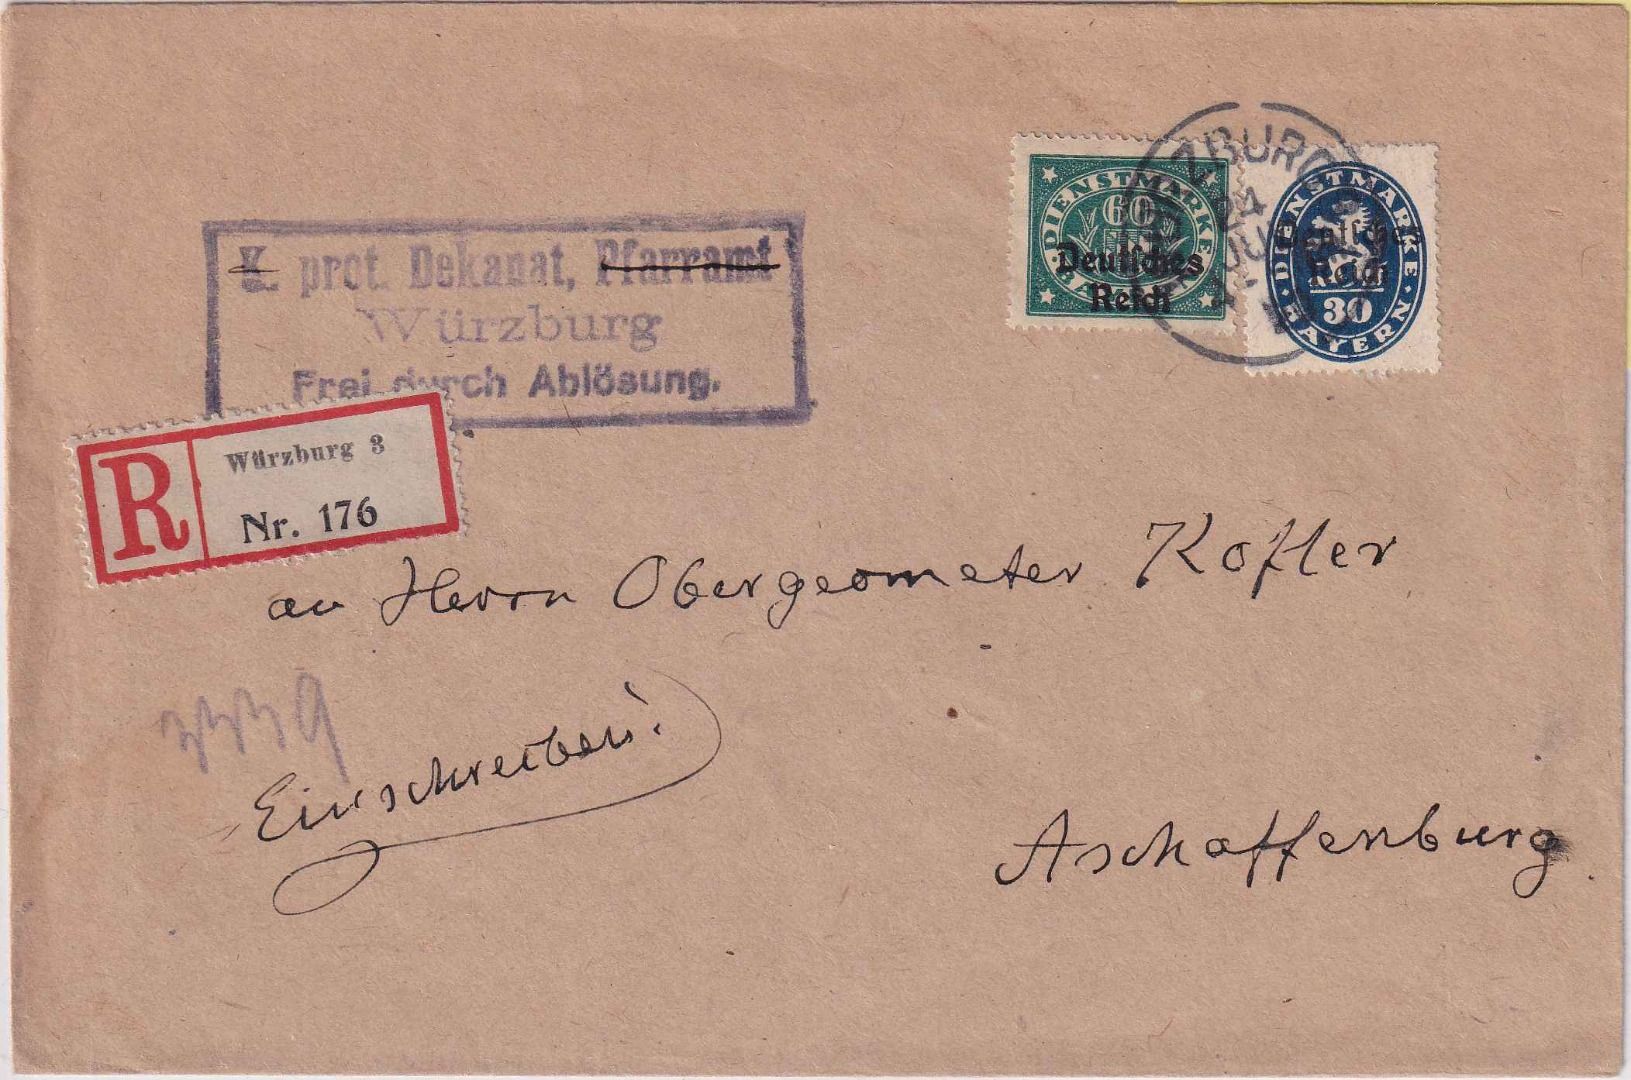 K. prot. Dekanat, Pfarramt
Würzburg
Frei durch Ablösung.
DIENSTMARKE
60
Deutsches
Reich
DIENSTMARKE
Deutsches
Reich
30
BAYERN
ZBURG
24
R
Würzburg 3
Nr. 176
an Herrn Obergeometer Kofler
Einschreiben!
Aschaffenburg.